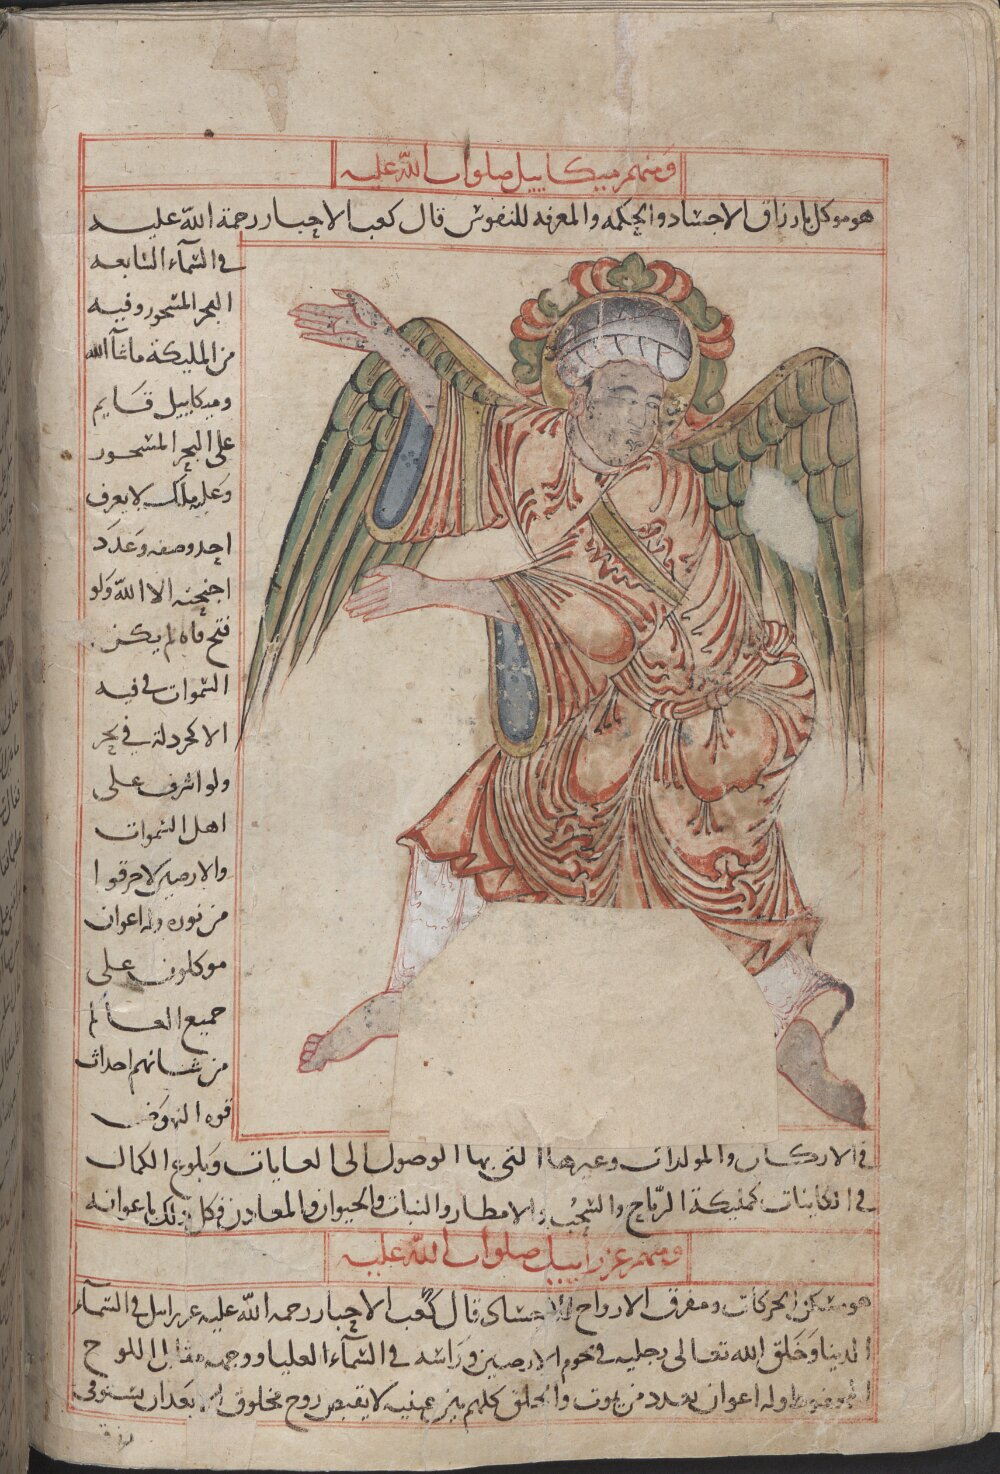 ومنهم ميكاييل صلوات الله عليه
هو موكل بارزاق الاجساد والحكمه والمعرفه للنفوس قال كعب الاحبار رحمة الله عليه
في السمآء السابعه
البحر المسجور وفيه
من المليكة ماشآ الله
وميكاييل قايم
على البحر المسجور
وعليه ملك لا يعرف
احد وصفه وعدد
اجنحته الا الله ولو
فتح فاه لم يكن
السموات في فيه
الا كخردلة في بحر
ولو اشرف على
اهل السموات
والارضين لاحرقوا
من نوره وله اعوان
موكلون على
جميع العالم
من شانهم احداث
قوه النهوض
في الاركان والمولدات وغيرها التي بها الوصول الى الغايات وبلوغ الكمال
في الكاينات كمليكة الرياح والسحب والامطار والنبات والحيوان والمعادن فكل ذلك باعوانه
ومنهم عزراييل صلوات الله عليه
هو مسكن الحركات ومفرق الارواح قال كعب الاحبار رحمه الله عليه عزراييل في السمآء
الدنيا وخلق الله تعالى رجليه في تخوم الارضين وراسه في السمآء العليا ووجهه مقابل اللوح
المحفوظ وله اعوان بعدد من يموت والخلق كلهم بين عينيه لا يقبض روح مخلوق الا بعد ان يستوفى
رزقه